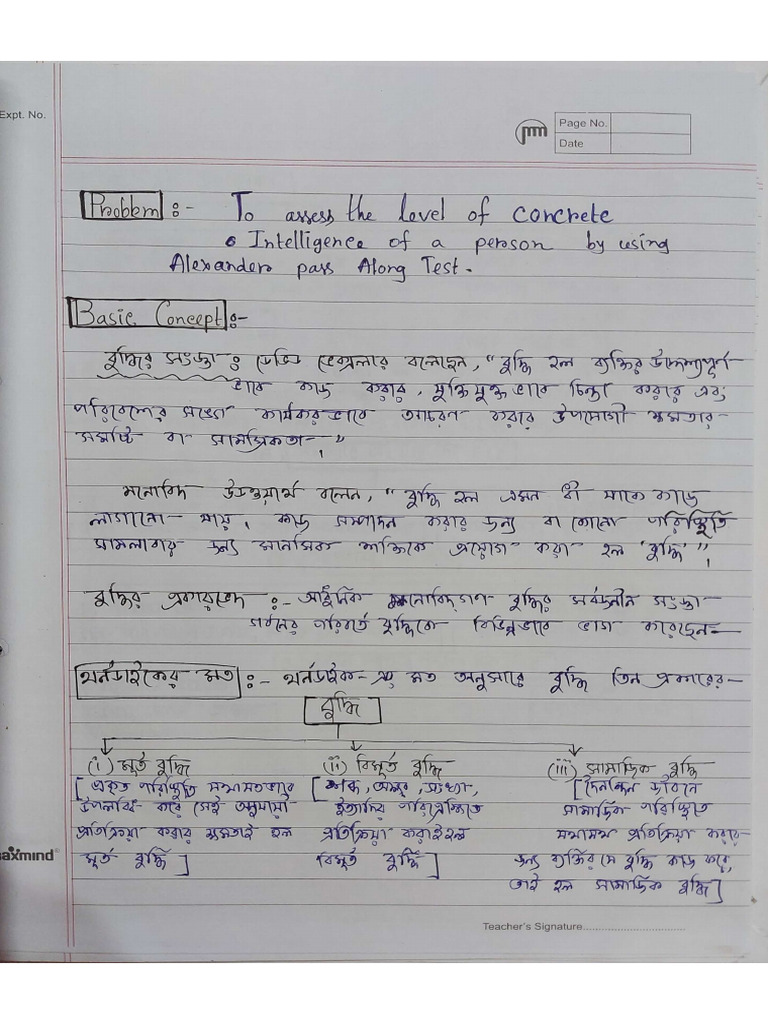 Expt. No.
jm
Page No.
Date
Problem :- To assess the level of concrete
Intelligence of a person by using
Alexanders pass Along Test.
Basic Concept :-
বুদ্ধির সংজ্ঞা : ডেভিড ওেক্সলার বলেছেন, "বুদ্ধি হল ব্যক্তির উদ্দেশ্যপূর্ণ
ভাবে কাজ করার, যুক্তিযুক্ত ভাবে চিন্তা করার এবং
পরিবেশের সঙ্গে কার্যকর ভাবে আচরণ করার উপযোগী ক্ষমতার
সমষ্টি বা সামগ্রিকতা।"
মনোবিদ উডওয়ার্থ বলেন, "বুদ্ধি হল এমন ধী যাকে কাজে
লাগানো যায়, কাজ সম্পাদন করার জন্য বা কোনো পরিস্থিতি
সামলাবার জন্য মানসিক শক্তিকে প্রয়োগ করা হল 'বুদ্ধি'"।
বুদ্ধির প্রকারভেদ :- আধুনিক মনোবিদগণ বুদ্ধির সর্বজনীন সংজ্ঞা
পরিবর্তে বুদ্ধিকে বিভিন্নভাবে ভাগ করেছেন-
থর্নডাইকের মত :- থর্নডাইক-এর মত অনুসারে বুদ্ধি তিন প্রকারের-
বুদ্ধি
(i) মূর্ত বুদ্ধি (ii) বিমূর্ত বুদ্ধি (iii) সামাজিক বুদ্ধি
[প্রকৃত পরিস্থিতি যথাযতভাবে [শব্দ, অক্ষর, সংখ্যা, [দৈনন্দিন জীবনে
উপলব্ধি করে সেই অনুযায়ী ইত্যাদির পরিপ্রেক্ষিতে সামাজিক পরিস্থিতে
প্রতিক্রিয়া করার ক্ষমতাই হল প্রতিক্রিয়া করাই হল যথাযথ প্রতিক্রিয়া করার
মূর্ত বুদ্ধি] বিমূর্ত বুদ্ধি] জন্য ব্যক্তির যে বুদ্ধি কাজ করে,
তাই হল সামাজিক বুদ্ধি]
axmind
Teacher's Signature